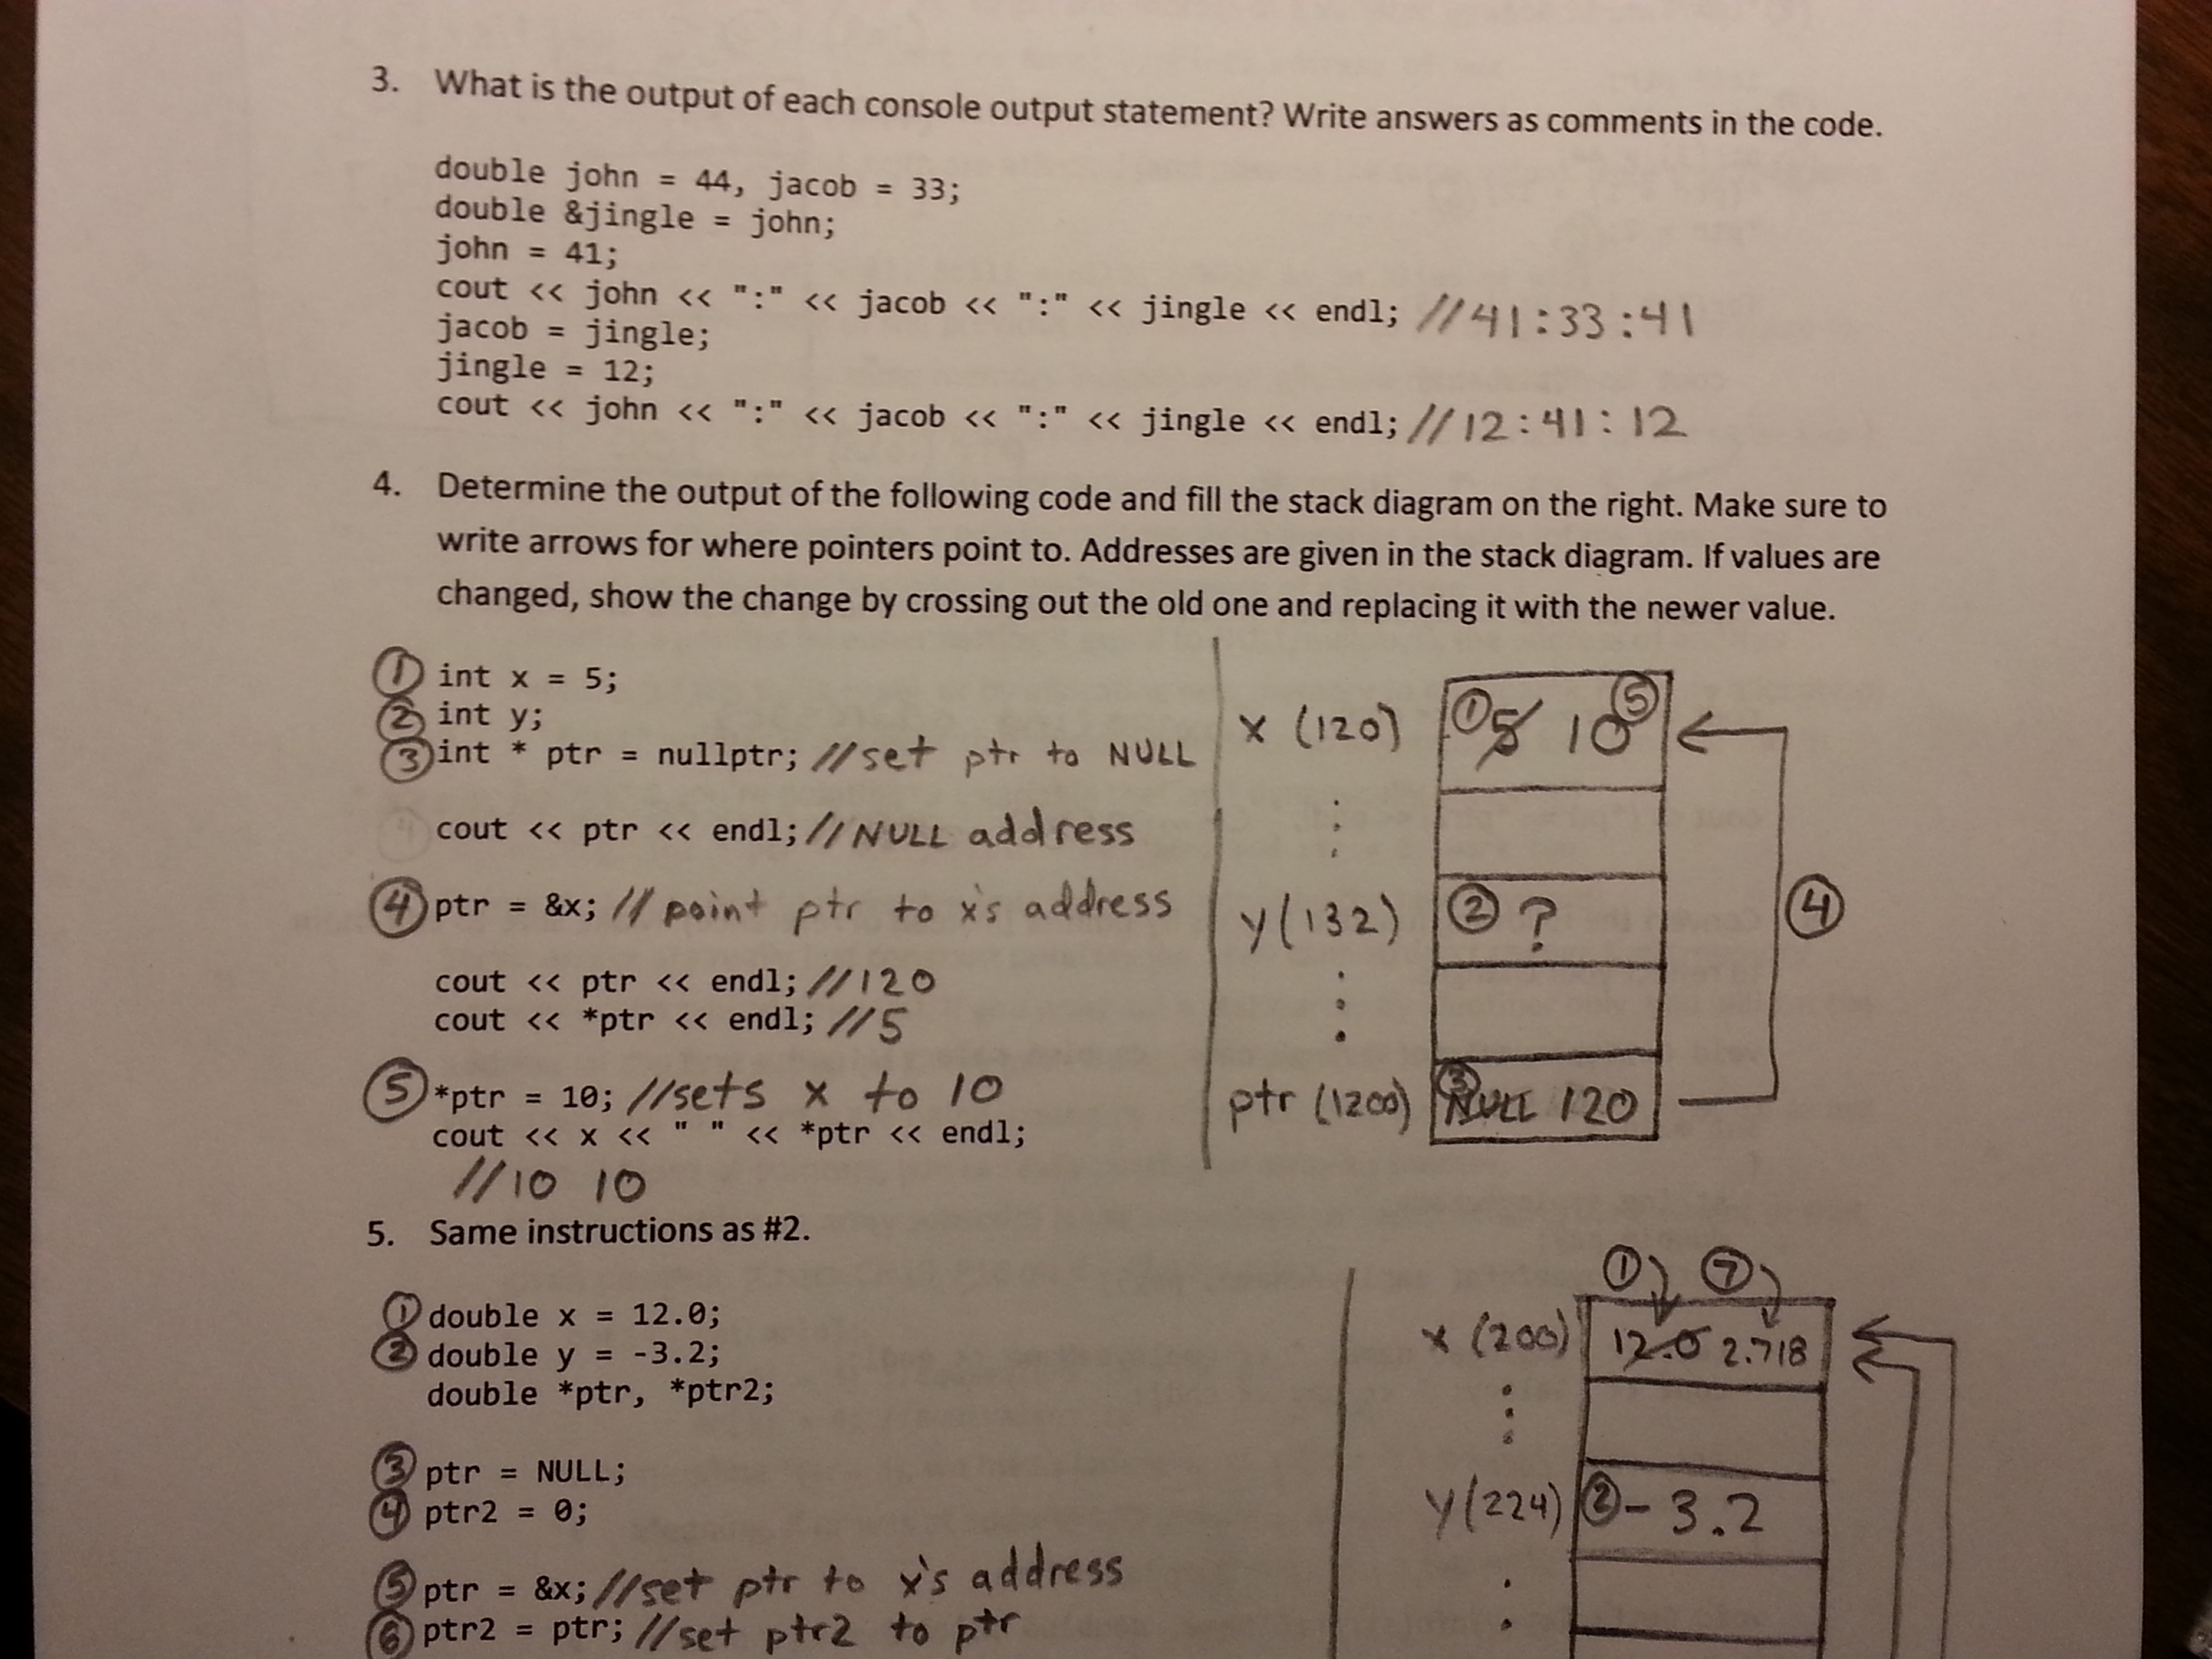 3. What is the output of each console output statement? Write answers as comments in the code.
double john = 44, jacob = 33;
double &jingle = john;
john = 41;
cout << john << ":" << jacob << ":" << jingle << endl; //41:33:41
jacob = jingle;
jingle = 12;
cout << john << ":" << jacob << ":" << jingle << endl; //12:41:12
4. Determine the output of the following code and fill the stack diagram on the right. Make sure to
write arrows for where pointers point to. Addresses are given in the stack diagram. If values are
changed, show the change by crossing out the old one and replacing it with the newer value.
① int x = 5;
② int y;
③ int * ptr = nullptr; //set ptr to NULL
cout << ptr << endl; //NULL address
④ ptr = &x; // point ptr to x's address
cout << ptr << endl; //120
cout << *ptr << endl; //5
⑤ *ptr = 10; //sets x to 10
cout << x << " " << *ptr << endl;
//10 10
x (120) ① 5 10 ⑤
y (132) ② ?
④
ptr (1200) ③ NULL 120
5. Same instructions as #2.
① double x = 12.0;
② double y = -3.2;
double *ptr, *ptr2;
③ ptr = NULL;
④ ptr2 = 0;
⑤ ptr = &x; //set ptr to x's address
⑥ ptr2 = ptr; //set ptr2 to ptr
① ⑦
x (200) 12.0 2.718
y (224) ② -3.2